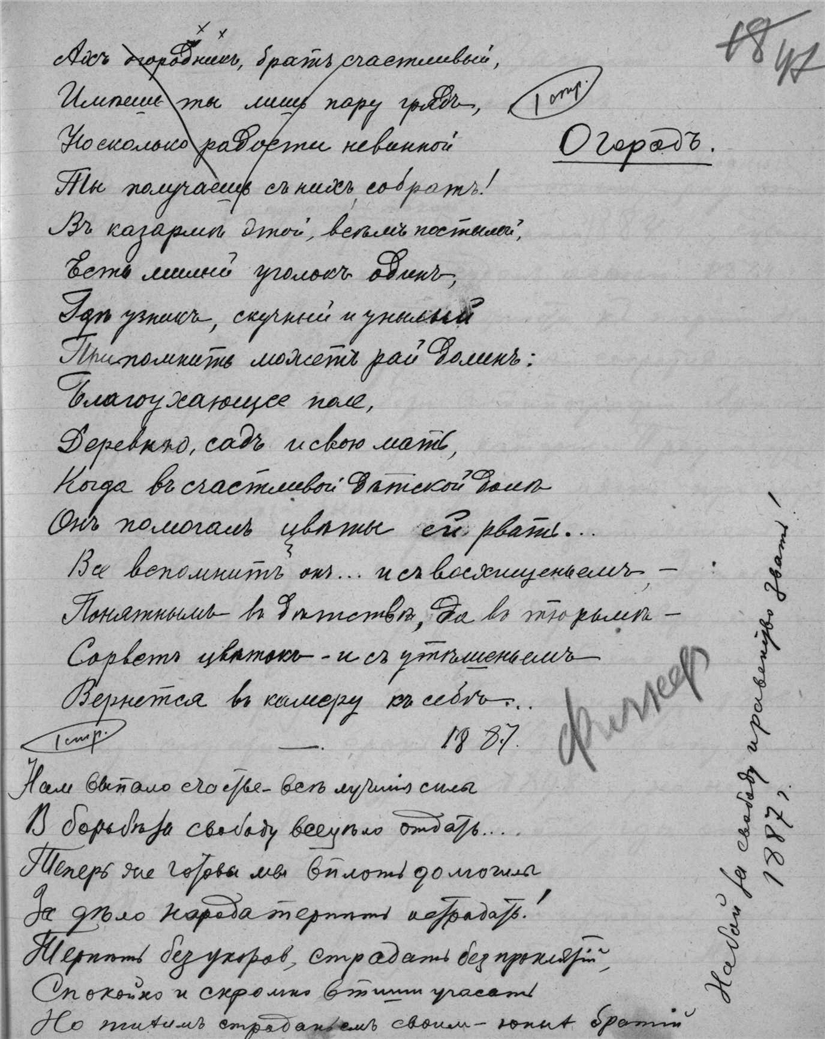 18
47
Ахъ огородникъ, братъ счастливый,
Имѣешь ты лишь пару грядъ,
1 стр.
Огородъ.
Но сколько радости невинной
Ты получаешь съ нихъ, собратъ!
Въ казармѣ этой, всѣмъ постылой,
Есть милый уголокъ одинъ,
Гдѣ узникъ, скучный и унылый
Припомнить можетъ рай долинъ:
Благоухающее поле,
Деревню, садъ и свою мать,
Когда въ счастливой дѣтской долѣ
Онъ помогалъ цвѣты ей рвать...
Все вспомнитъ онъ... и съ восхищеньемъ, –
Понятнымъ въ дѣтствѣ, да въ тюрьмѣ –
Сорветъ цвѣтокъ – и съ утѣшеньемъ
Вернется въ камеру къ себѣ...
1887.
Фигнер
1 стр.
Нам выпало счастье – всѣ лучшія силы
В борьбѣ за свободу всецѣло отдать...
Теперь же готовы мы вплоть до могилы
За дѣло народа терпѣть и страдать!
Терпѣть без укоров, страдать без проклятій,
Спокойно и скромно в тиши угасать
Но тихимъ страданьемъ своим – юных братій
На бой за свободу и равенство звать!
1887 г.